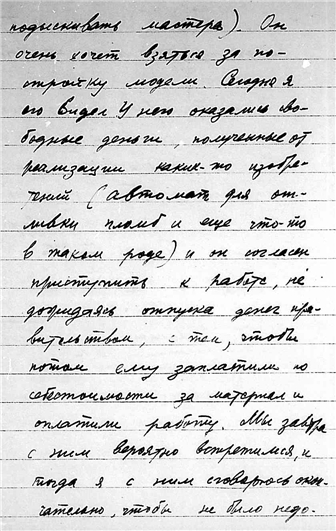 подыскивать мастера). Он
очень хочет взяться за по-
стройку модели. Сегодня я
его видел У него оказались сво-
бодные деньги, полученные от
реализации каких-то изобре-
тений (автомат для от-
ливки пломб и еще что-то
в таком роде) и он согласен
приступить к работе, не
дожидаясь отпуска денег пра-
вительством, с тем, чтобы
потом ему заплатили по
себестоимости за материал и
оплатили работу. Мы завтра
с ним вероятно встретимся, и
тогда я с ним сговорюсь окон-
чательно, чтобы не было недо-